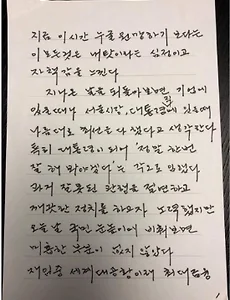 지금 이 시간 누굴 원망하기 보다는
이 모든것은 내 탓이라는 심정이고
자책감을 느낀다
지나온 날을 되돌아보면, 기업에
있을때나 서울시장, 대통령직에 있을때
나름대로 최선을 다 했다고 생각한다
특히 대통령이 되어 '정말 한번
잘 해 봐야겠다'는 각오로 임했다
과거 잘못된 관행을 절연하고
깨끗한 정치를 하고자 노력했지만
오늘 날 국민 눈높이에 비춰보면
미흡한 부분이 없지 않았다
재임중 세계대공황이래 최대 금융